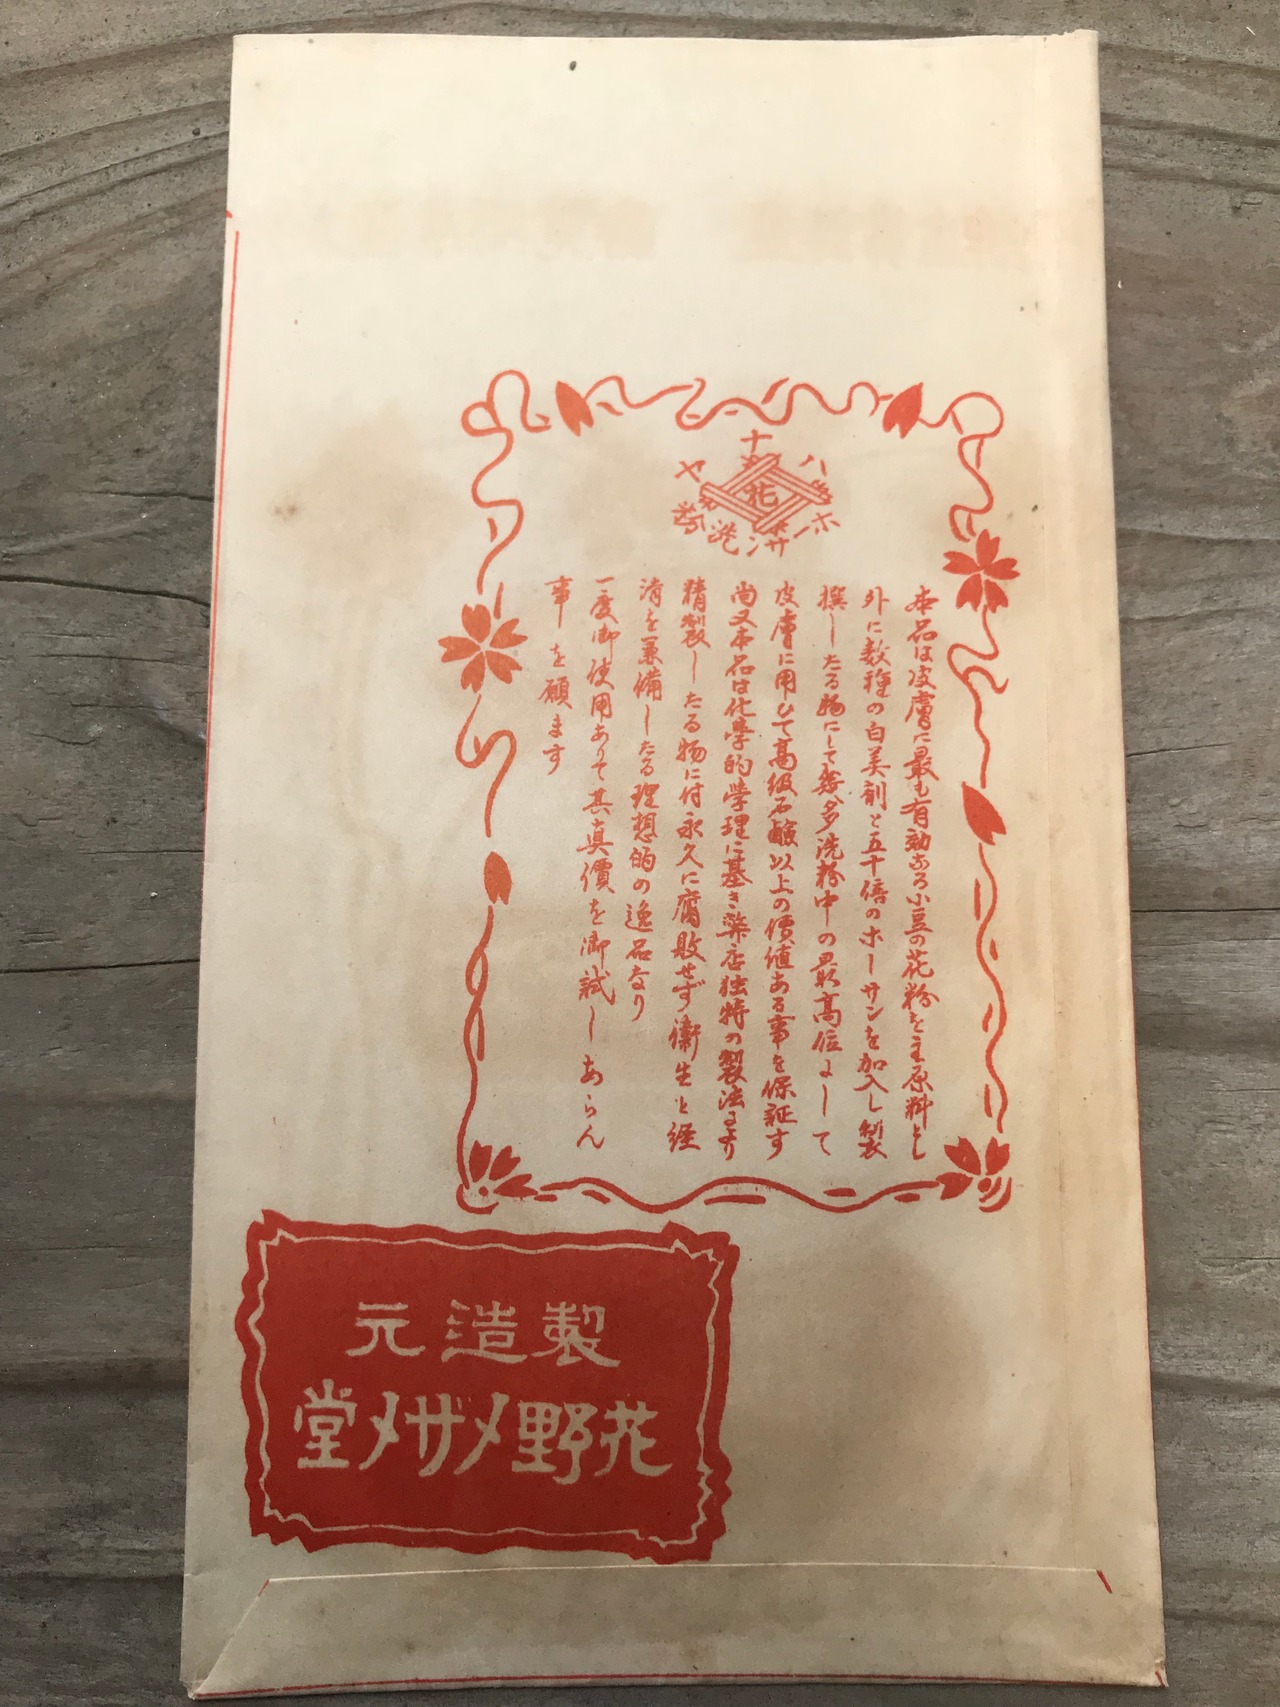 花
ホーサン洗粉
本品は皮膚に最も有効なる小豆の花粉を主原料とし
外に数種の白美剤と五十倍のホーサンを加入し製
撰したる物にして幾多洗粉中の最高位にして
皮膚に用ひて高級石鹸以上の價値ある事を保証す
尚又本品は化學的學理に基き薬店独特の製法により
精製したる物に付永久に腐敗せず衛生と経
済を兼備したる理想的の逸品なり
一度御使用ありて其真價を御試しあらん
事を願ます
製造元
花野メザメ堂